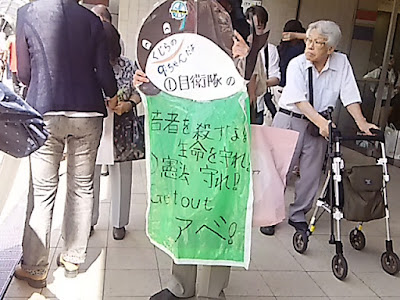 くじらの
9ちゃんだよ
①自衛隊の
若者を殺すな!
生命を守れ!
憲法 守れ!!
Get out
アベ!